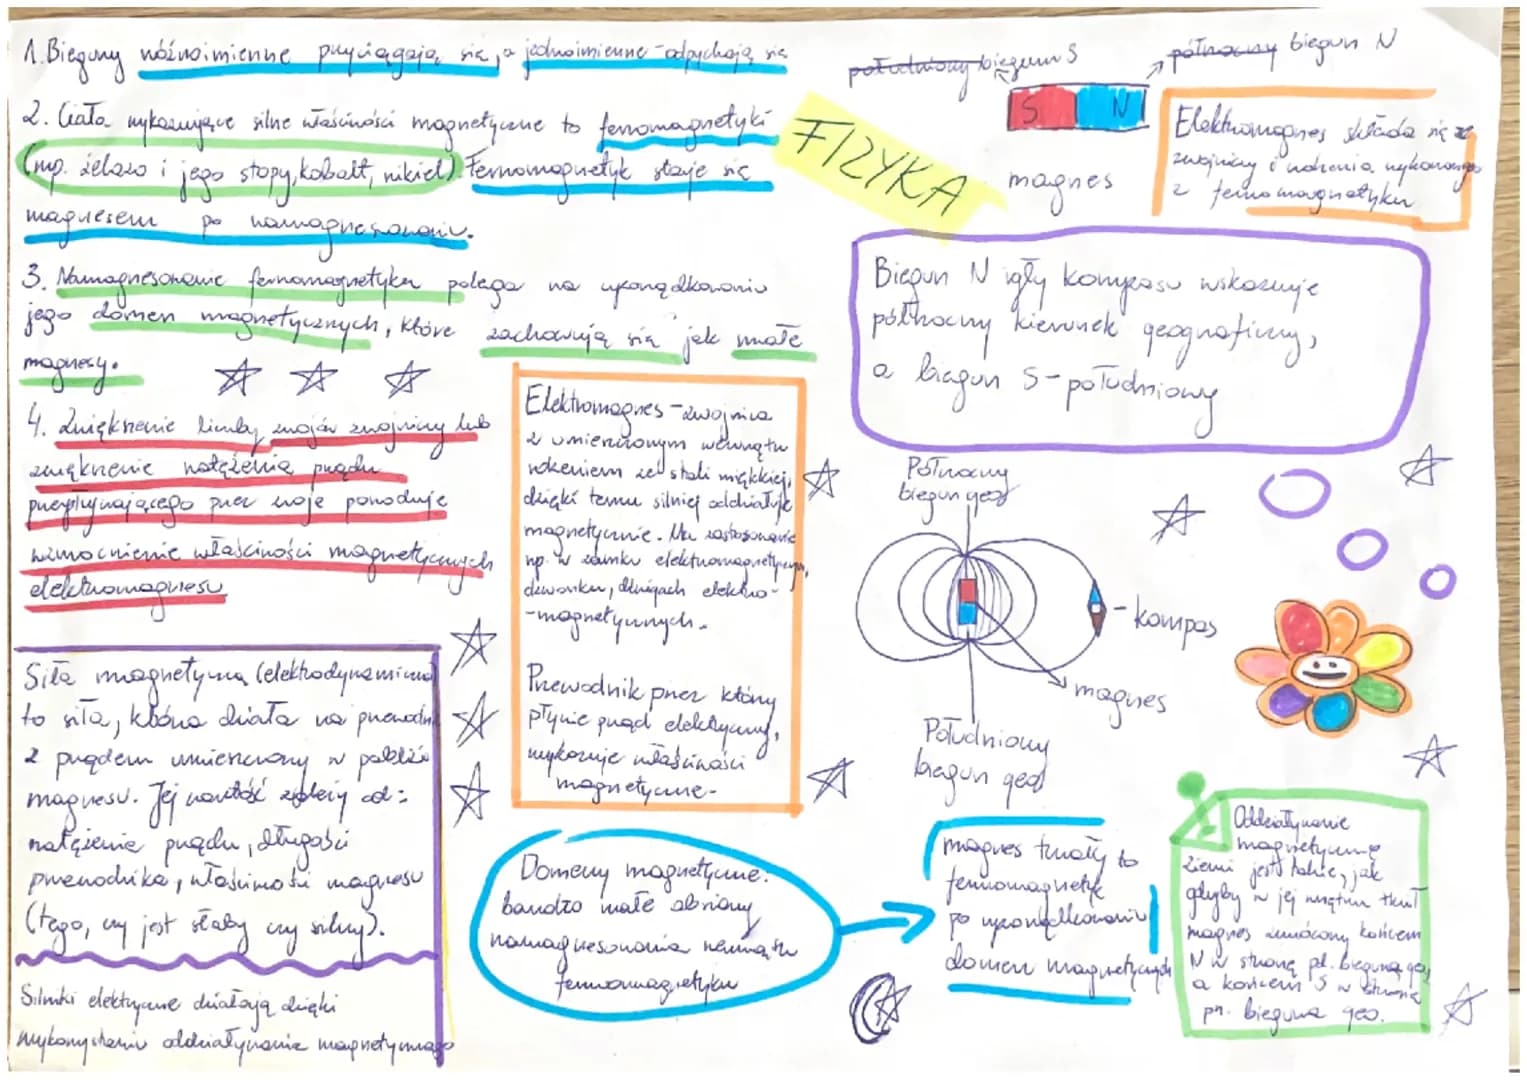 1. Bieguny różnoimienne przyciągają się, a jednoimienne - odpychają się
2. Ciała wykazujące silne właściwości magnetyczne to ferromagnetyki
(np. żelazo i jego stopy, kobalt, nikiel). Ferromagnetyk staje się
magnesem po namagnesowaniu.
3. Namagnesowanie ferromagnetyka polega na uporządkowaniu
jego domen magnetycznych, które zachowują się jak małe
magnesy.
4. Zwiększenie liczby zwojów zwojnicy lub
zwiększenie natężenia prądu
przepływającego przez zwoje powoduje
wzmocnienie właściwości magnetycznych
elektromagnesu
Siła magnetyczna (elektrodynamiczna)
to siła, która działa na przewodnik
z prądem umieszczony w pobliżu
magnesu. Jej wartość zależy od:
natężenia prądu, długości
przewodnika, właściwości magnesu
(tego, czy jest słaby czy silny).
Silniki elektryczne działają dzięki
wykorzystaniu oddziaływania magnetycznego
Elektromagnes - zwojnica
z umieszczonym wewnątrz
rdzeniem ze stali miękkiej,
dzięki temu silniej oddziałuje
magnetycznie. Ma zastosowanie
np. w zamku elektromagnetycznym,
dzwonku, dźwigach elektro-
-magnetycznych.
Przewodnik przez który
płynie prąd elektryczny,
wykazuje właściwości
magnetyczne.
Domeny magnetyczne:
bardzo małe obszary
namagnesowania wewnątrz
ferromagnetyku
FIZYKA
południowy biegun S
północny biegun N
S N
magnes
Elektromagnes składa się ze
zwojnicy i rdzenia wykonanego
z ferromagnetyku
Biegun N igły kompasu wskazuje
północny kierunek geograficzny,
a biegun S - południowy
Północny
biegun geo
- kompas
magnes
Południowy
biegun geo
magnes trwały to
ferromagnetyk
po uporządkowaniu
domen magnetycznych
Oddziaływanie
magnetyczne
ziemi jest takie, jak
gdyby w jej wnętrzu tkwił
magnes zwrócony końcem
N w stronę pd. bieguna geo,
a końcem S w stronę
pn. bieguna geo.